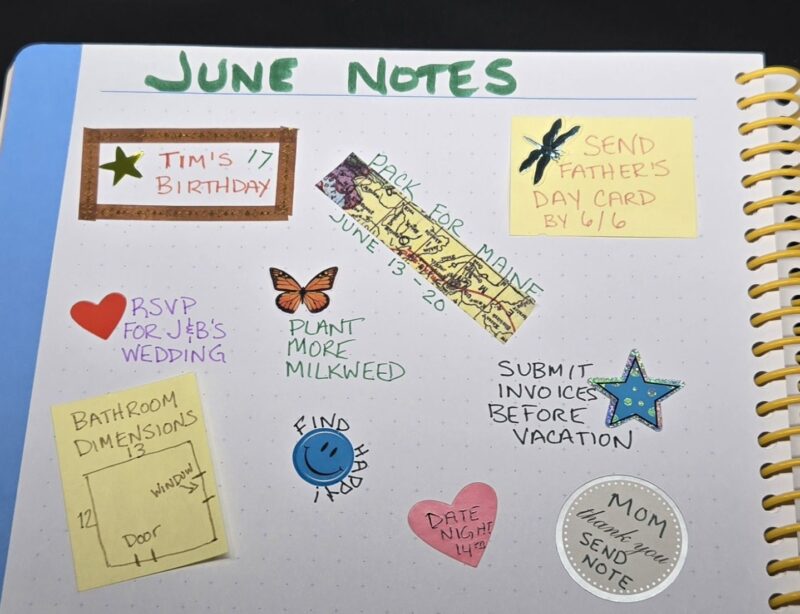 JUNE NOTES
TIM'S 17
BIRTHDAY
PACK FOR MAINE
JUNE 13 - 20
SEND
FATHER'S
DAY CARD
BY 6/6
RSVP
FOR J&B'S
WEDDING
PLANT
MORE
MILKWEED
SUBMIT
INVOICES
BEFORE
VACATION
BATHROOM
DIMENSIONS
13
WINDOW
12
DOOR
FIND HAPPY!
DATE
NIGHT
14TH
MOM
thank you
SEND
NOTE